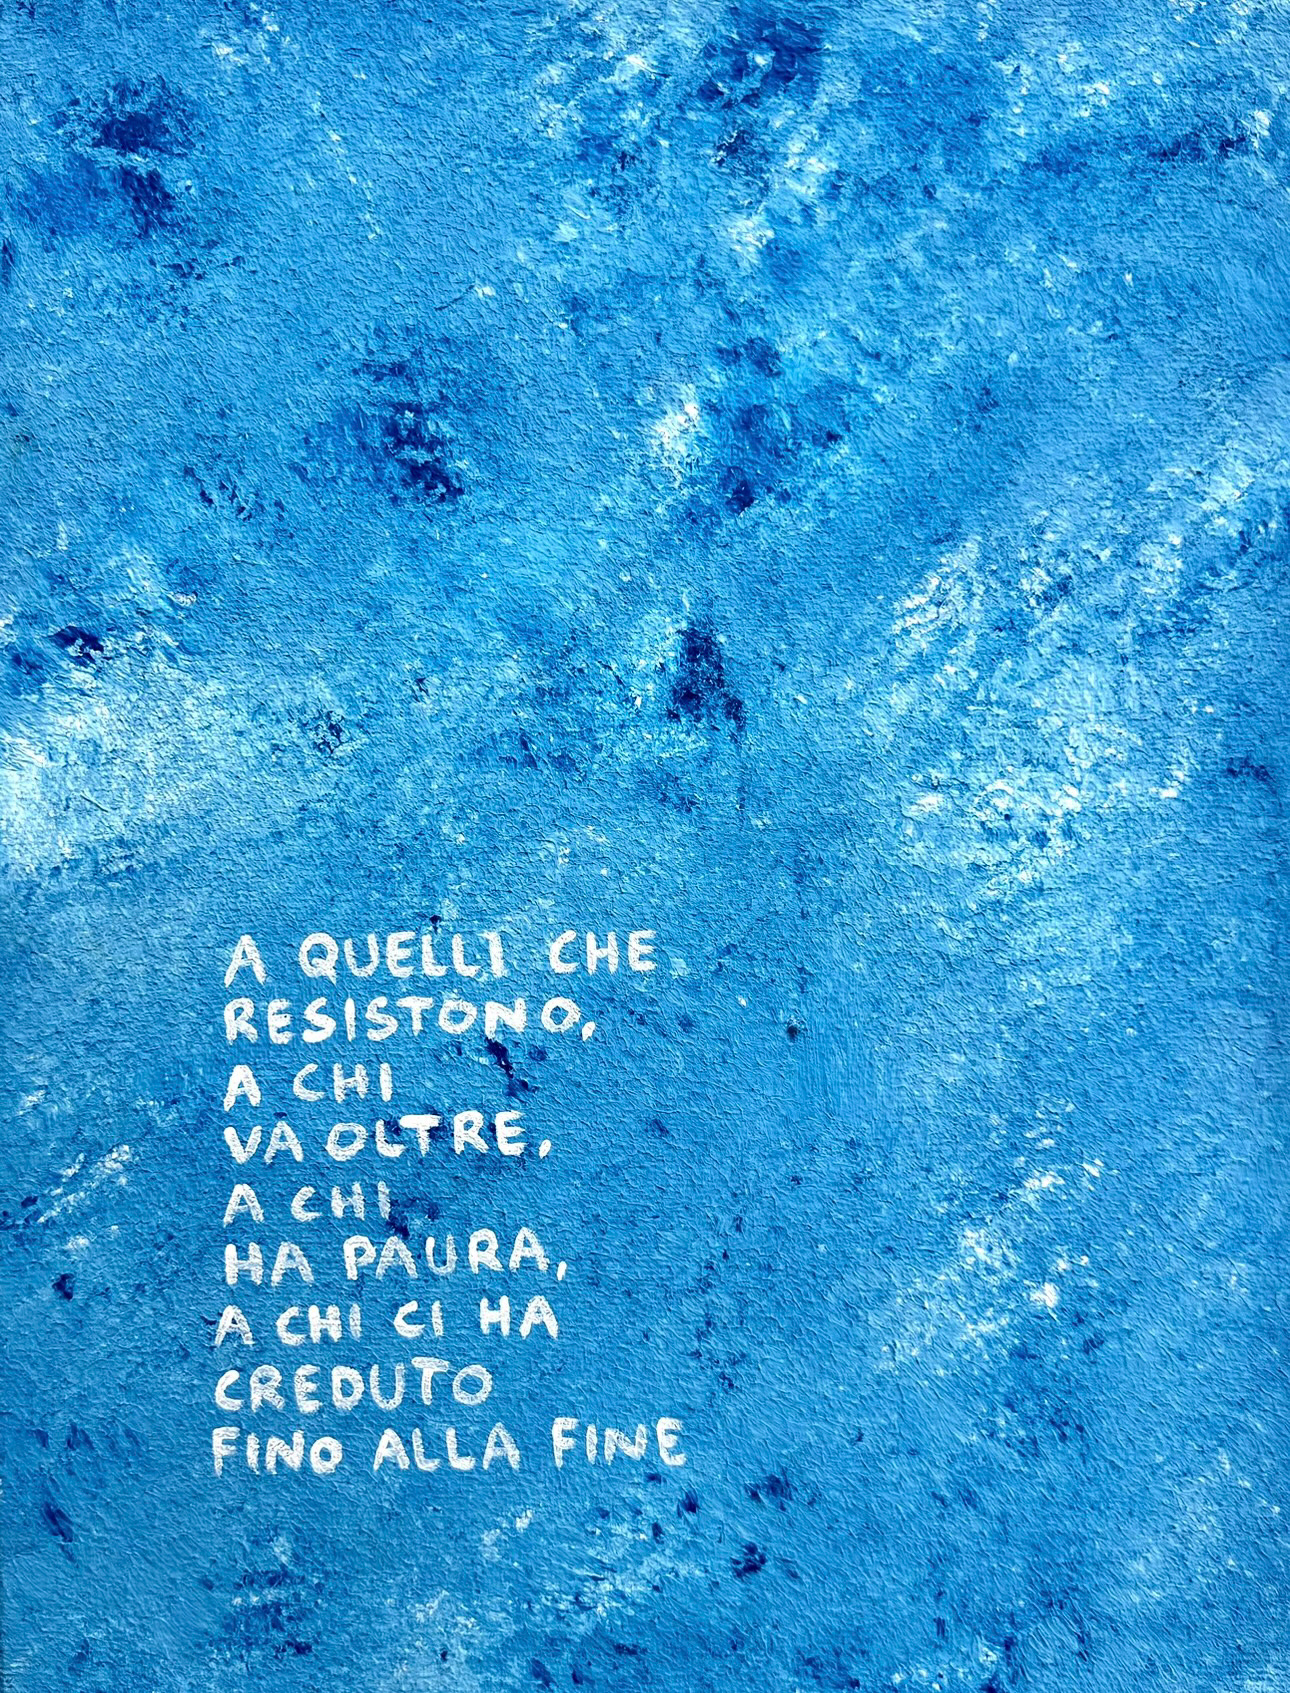 A QUELLI CHE
RESISTONO,
A CHI
VA OLTRE,
A CHI
HA PAURA,
A CHI CI HA
CREDUTO
FINO ALLA FINE